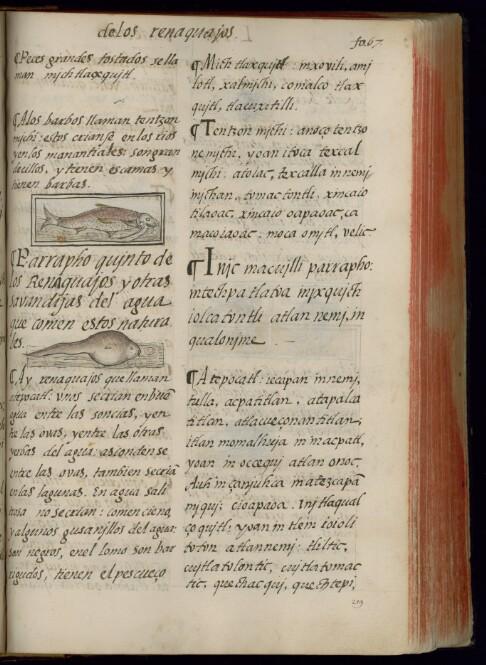 de los renaquajos.
fo. 67.
¶ Peces grandes tostados se lla
man michtlaxquitl.
¶ A los barbos llaman tentzon
michi: estos crianse en los rios
y en los manantiales: son gran
decillos, y tienen escamas y
tienen barbas.
¶ Parrapho quinto de
los Renaquajos y otras
savandijas del agua
que comen estos natura
les.
¶ Ay renaquajos que llaman
atepocatl: unos se crian en buē
agua entre las
tre las ovas, y entre las otras
yervas del agua: ascondense
entre las ovas, tambien se criā
en las lagunas. En agua sali
trosa no se crian: comen cieno,
y algunos gusanillos del agua:
son negros, en el lomo son bar
rigudos, tienen el pescueço
¶ Mich tlaxquitl: mxovili, ami
lotl, xalmichi, comalco tlax
quitl,
¶ Tentzon michi: anoço tentzo
ne michi, yoan itoca texcal
michi: atoiac, texcalla in nemj
michpan,
tilaoac, oapaoac, ca
moca omjtl, velic
¶ Injc macuilli parrapho:
intechpa tlatoa injxqujch
ioiolcatontli atlan nemj, in
qualonjme.
¶ Atepocatl: icucpan in nemj,
tulla, acpatitlan, atapala
titlan, atlacueçonantitlan,
itlan momalhuja in macpatl,
yoan in occequj atlan onoc.
Auh in canjuhca
mjquj: cioapaoa. Injtlaqual
çoquitl, yoan in tlein ioioli
toton atlan nemj: tliltic,
cujtlatolontic, cujtlatomac
tic, quechacquj, quechtepi,
219